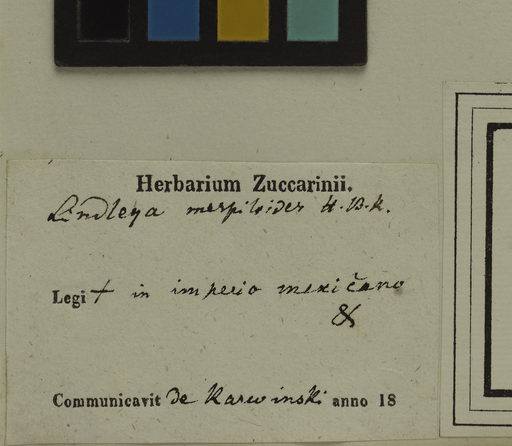 Herbarium Zuccarinii.
Lindleya mespiloides H.B.K.
Legit in imperio mexicano
&
Communicavit de Karwinski anno 18